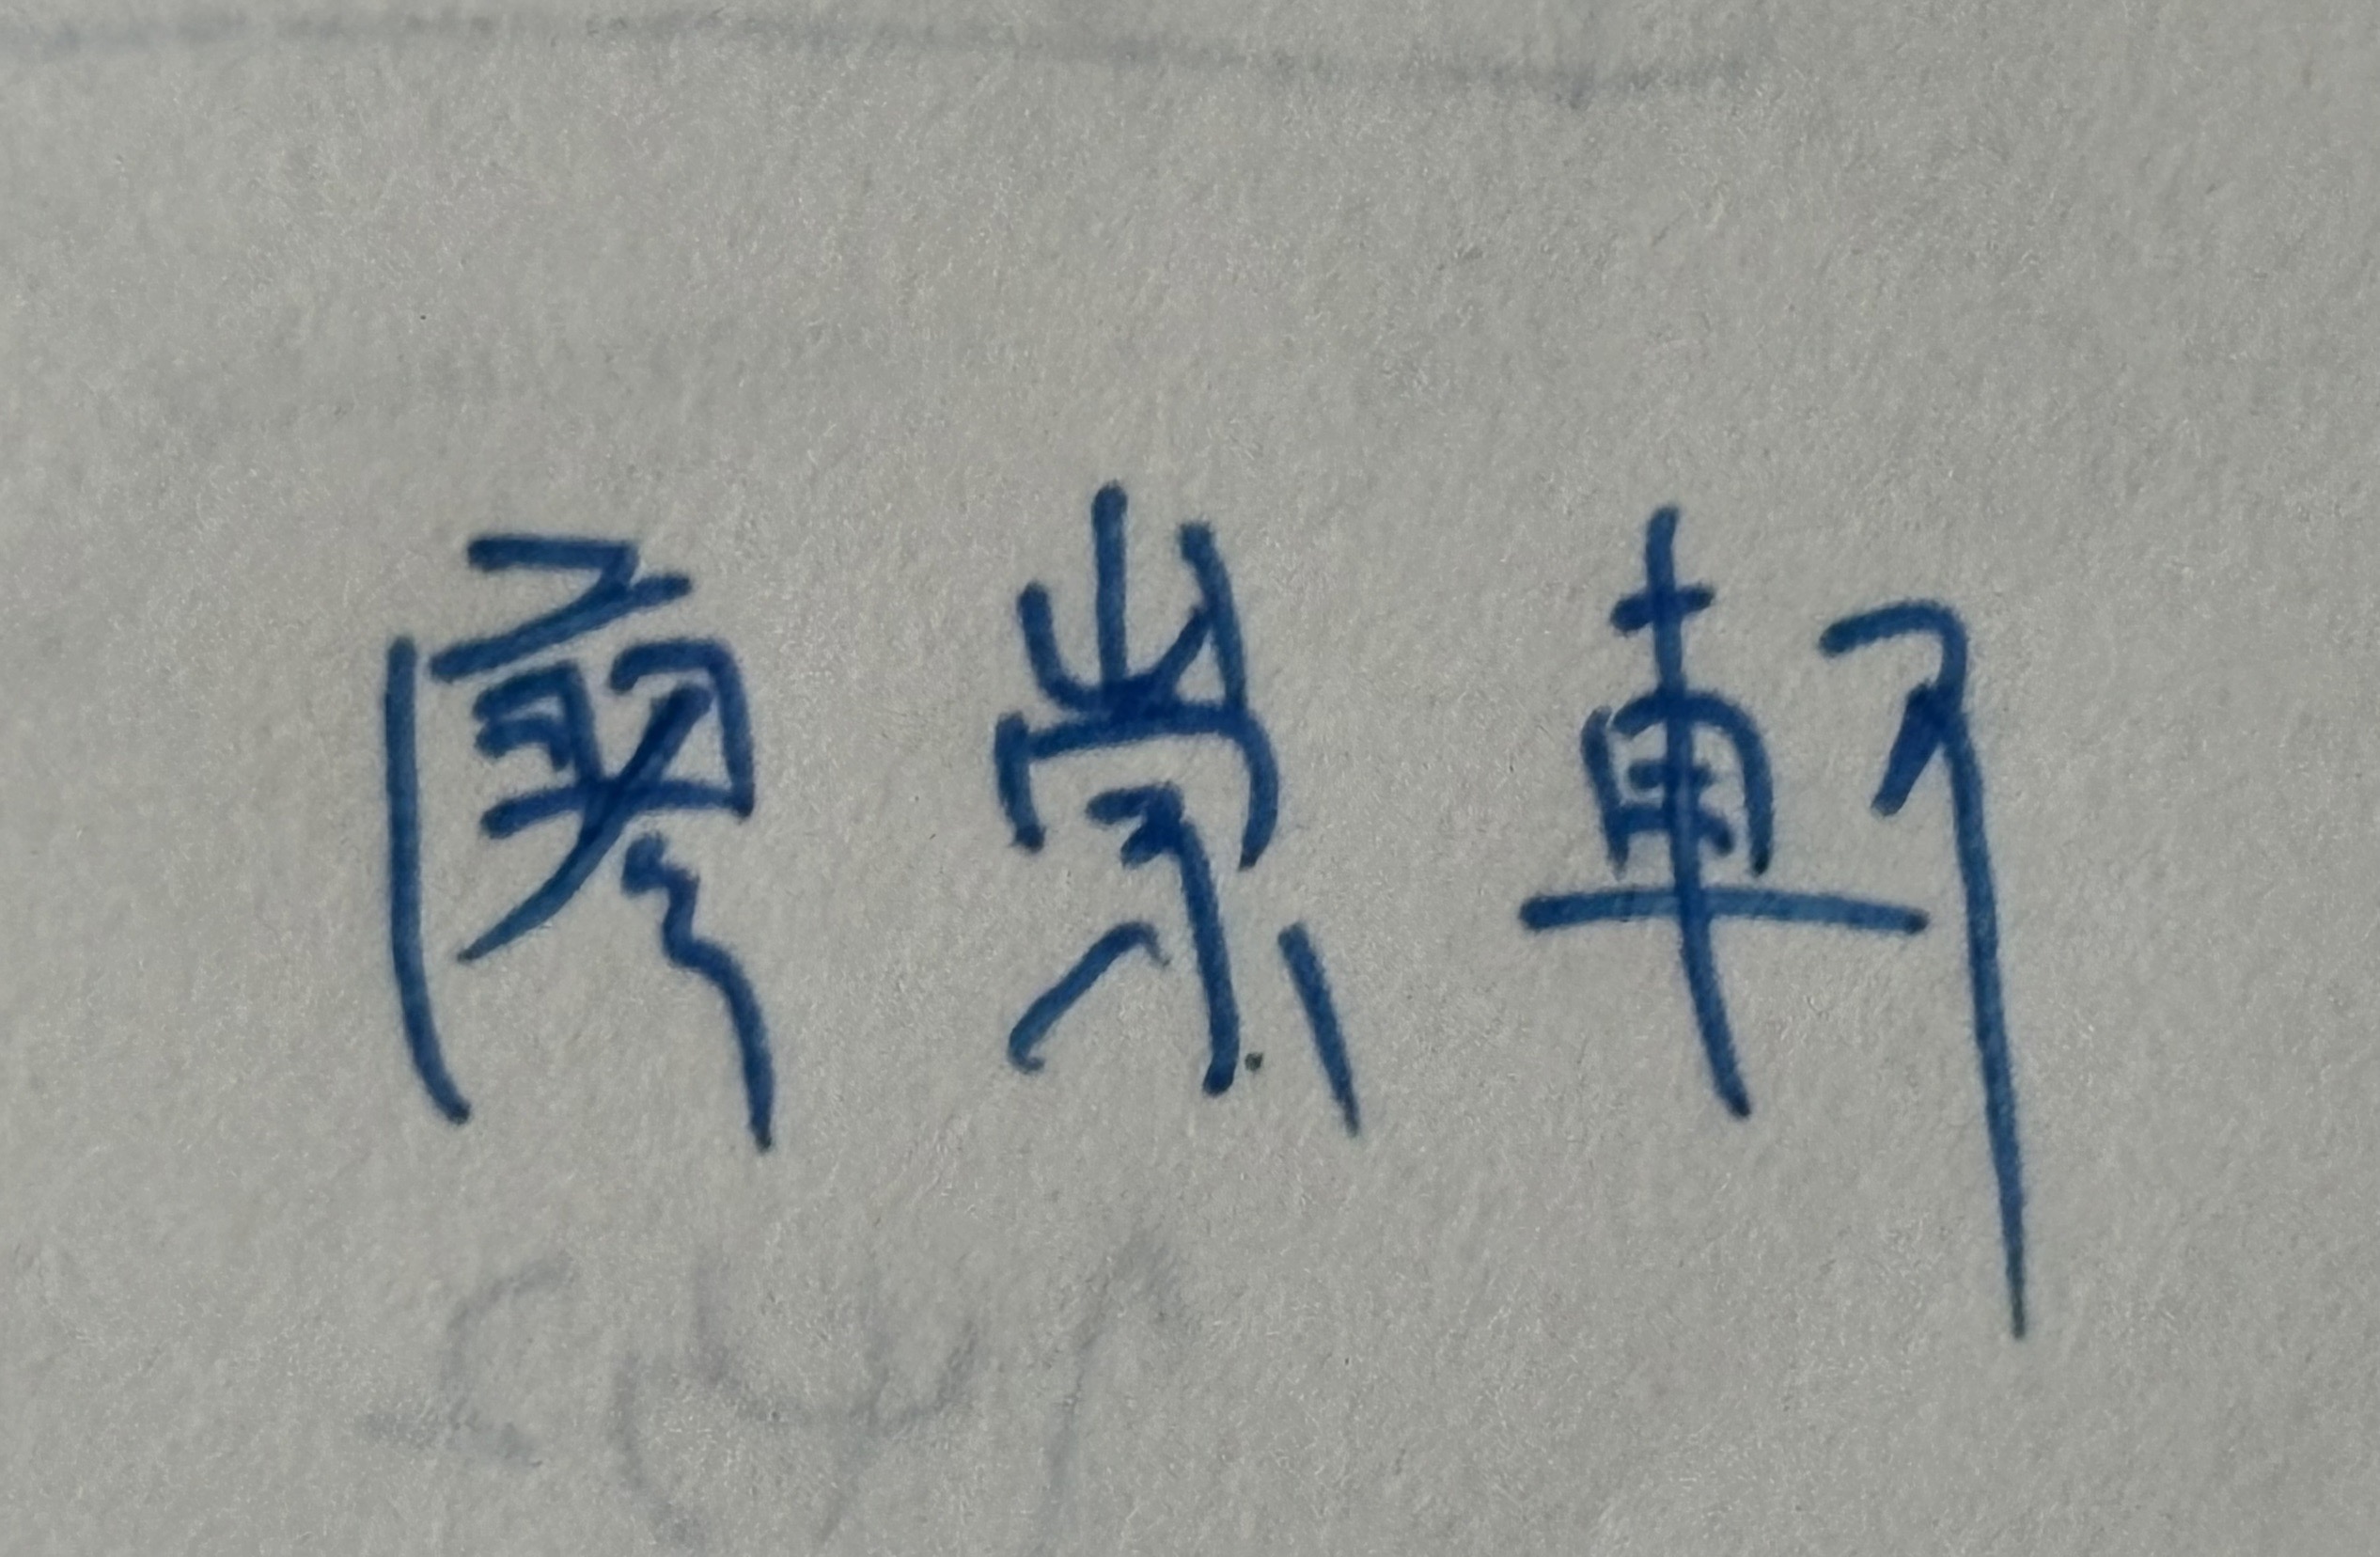 廖崇軒